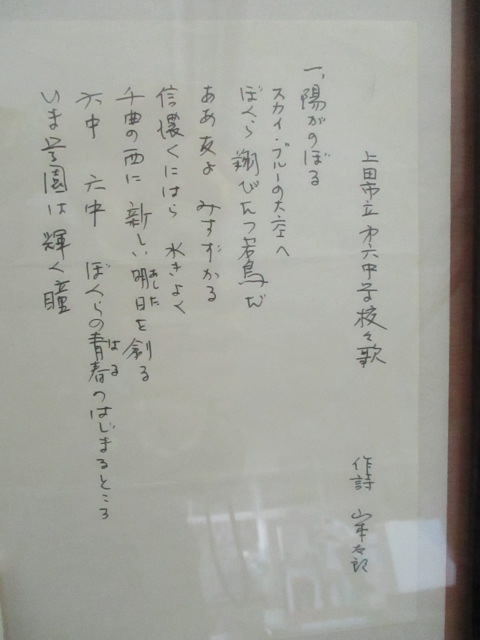 上田市立㐧六中学校々歌
作詩 山本太郎
一、陽がのぼる
スカイ・ブルーの大空へ
ぼくら 翔びたつ若鳥だ
ああ友よ みすずかる
信濃くにはら 水きよく
千曲の西に 新しい明日を創る
あした
六中 六中 ぼくらの青春のはじまるところ
はる
いま学園は輝く瞳